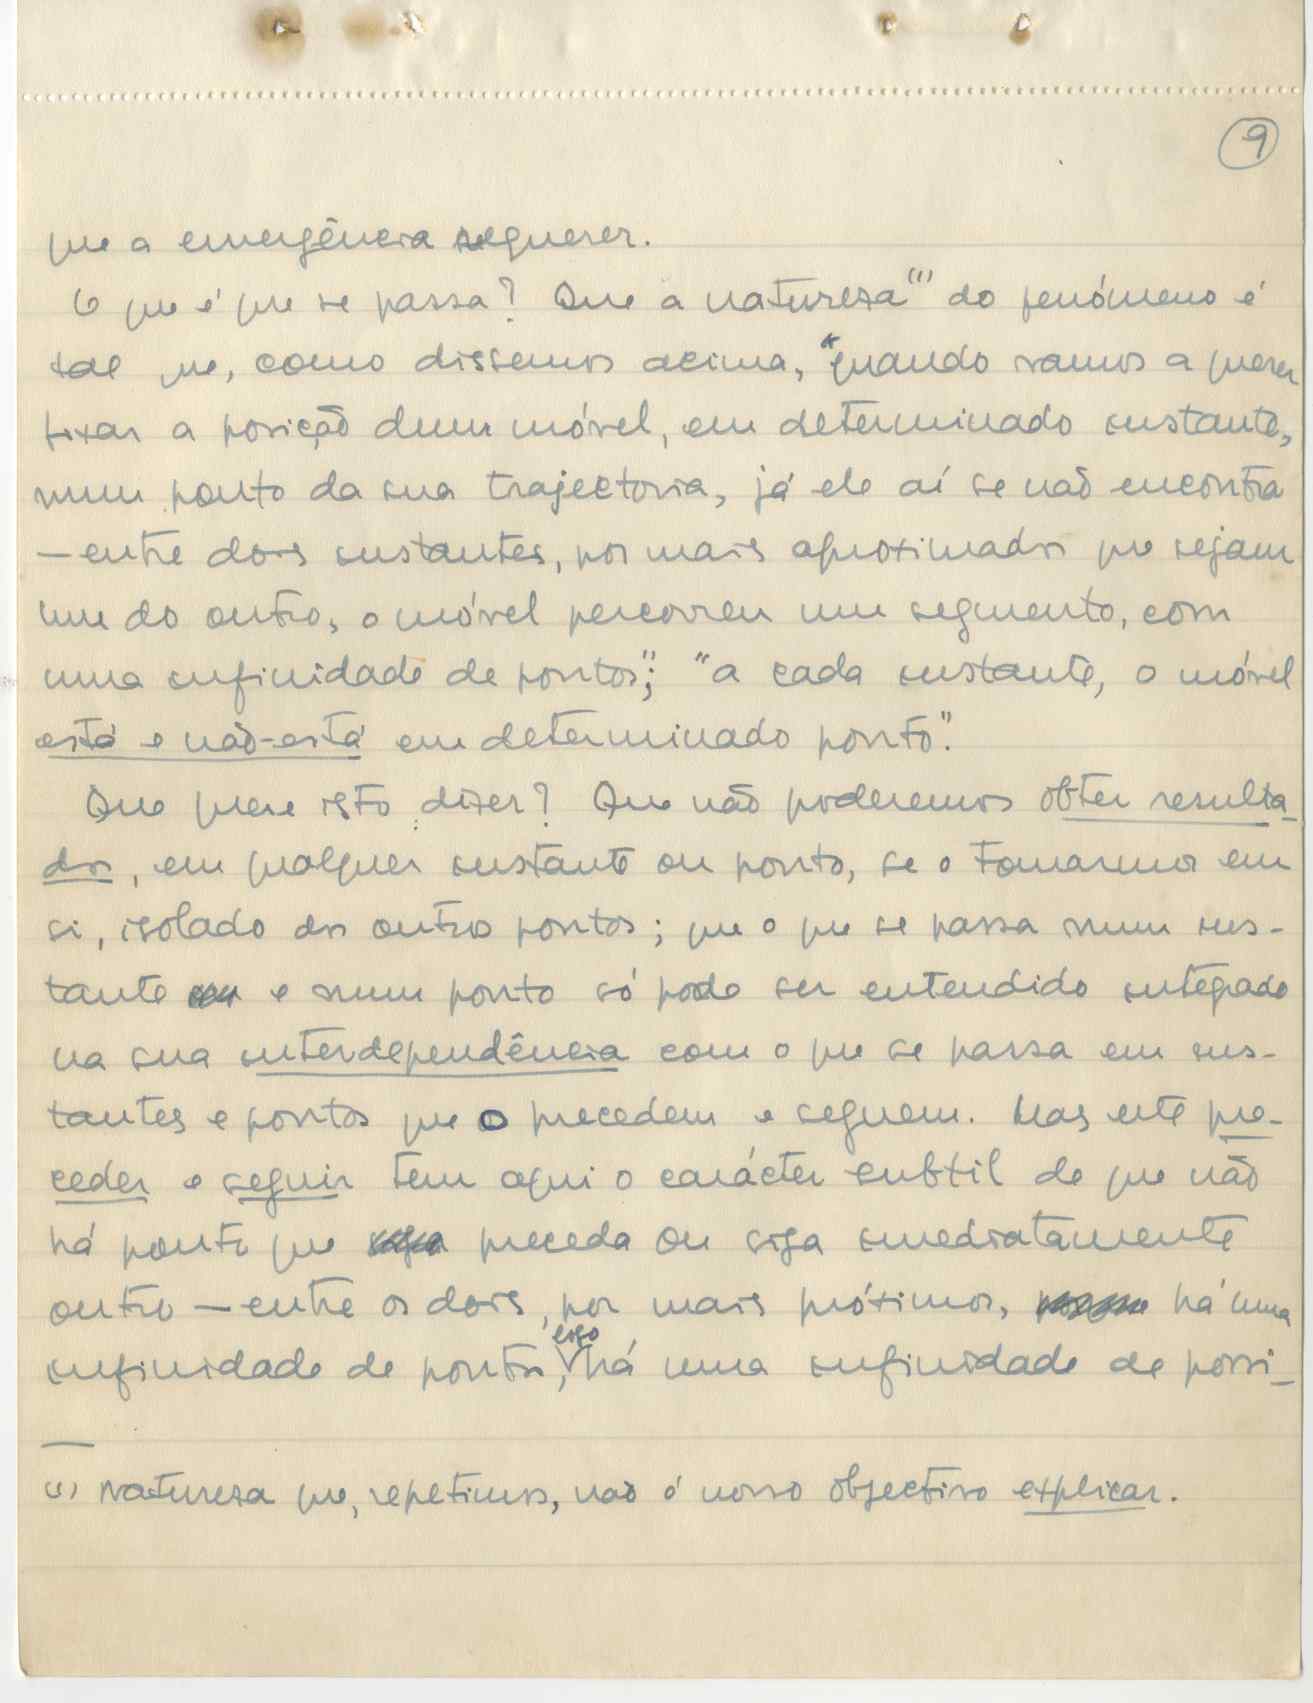 9
que a emergência requerer.
O que é que se passa? Que a natureza(1) do fenómeno é
tal que, como dissemos acima, "quando vamos a querer
fixar a posição dum móvel, em determinado instante,
num ponto da sua trajectoria, já ele aí se não encontra
— entre dois instantes, por mais aproximados que sejam
um do outro, o móvel percorreu um segmento, com
uma infinidade de pontos"; "a cada instante, o móvel
está e não-está em determinado ponto".
Que quere isto dizer? Que não poderemos obter resulta-
dos, em qualquer instante ou ponto, se o tomarmos em
si, isolado dos outros pontos; que o que se passa num ins-
tante e num ponto só pode ser entendido integrado
na sua interdependência com o que se passa em ins-
tantes e pontos que o precedem e seguem. Mas este pre-
ceder e seguir tem aqui o carácter subtil de que não
há ponto que preceda ou siga imediatamente
outro — entre os dois, por mais próximos, há uma
infinidade de pontos, logo há uma infinidade de possi-
(1) Natureza que, repetimos, não é nosso objectivo explicar.